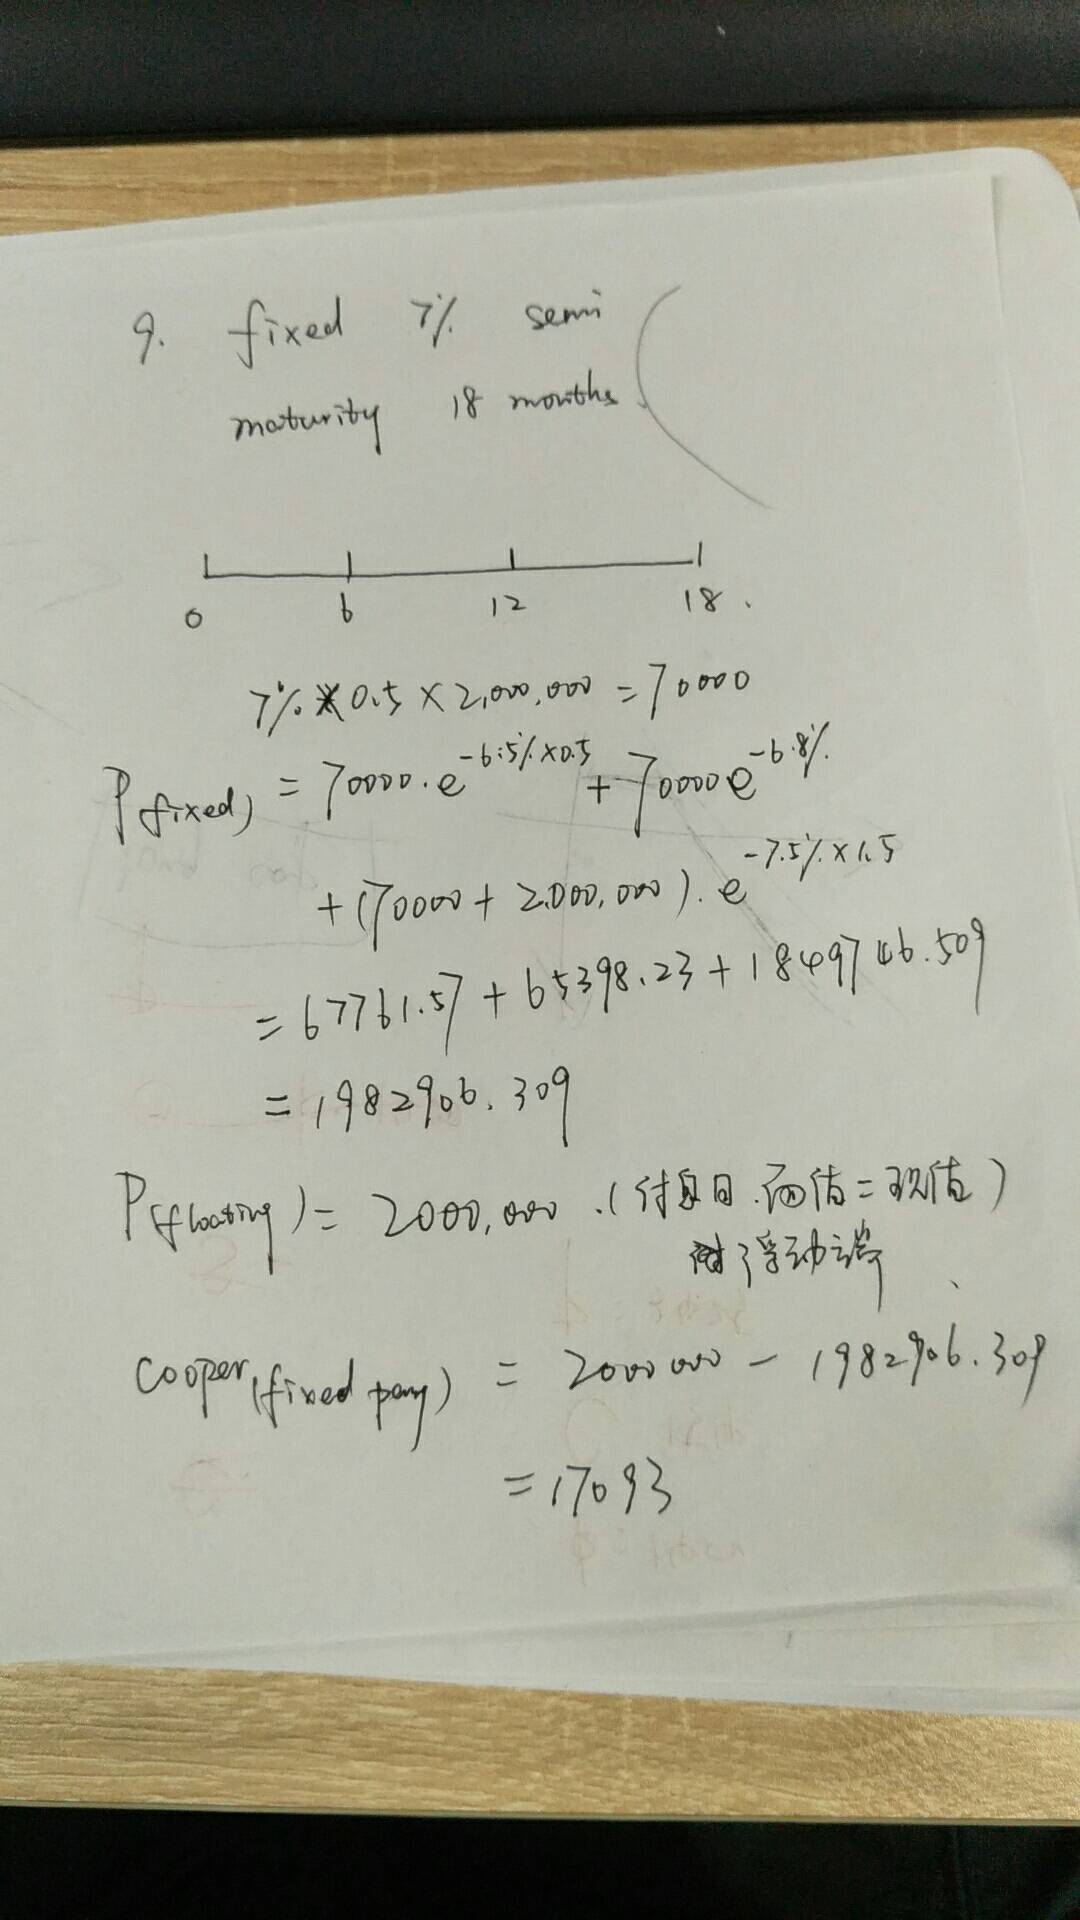 9. fixed 7% semi
maturity 18 months.
0 6 12 18.
7% × 0.5 × 2,000,000 = 70000
P(fixed) = 70000·e^{-6.5%×0.5} + 70000e^{-6.8%}
+ (70000 + 2,000,000)·e^{-7.5%×1.5}
= 67761.57 + 65398.23 + 1849746.509
= 1982906.309
P(floating) = 2000,000.(付息日.面值=现值)
浮动端
cooper(fixed pay) = 2000000 - 1982906.309
= 17093